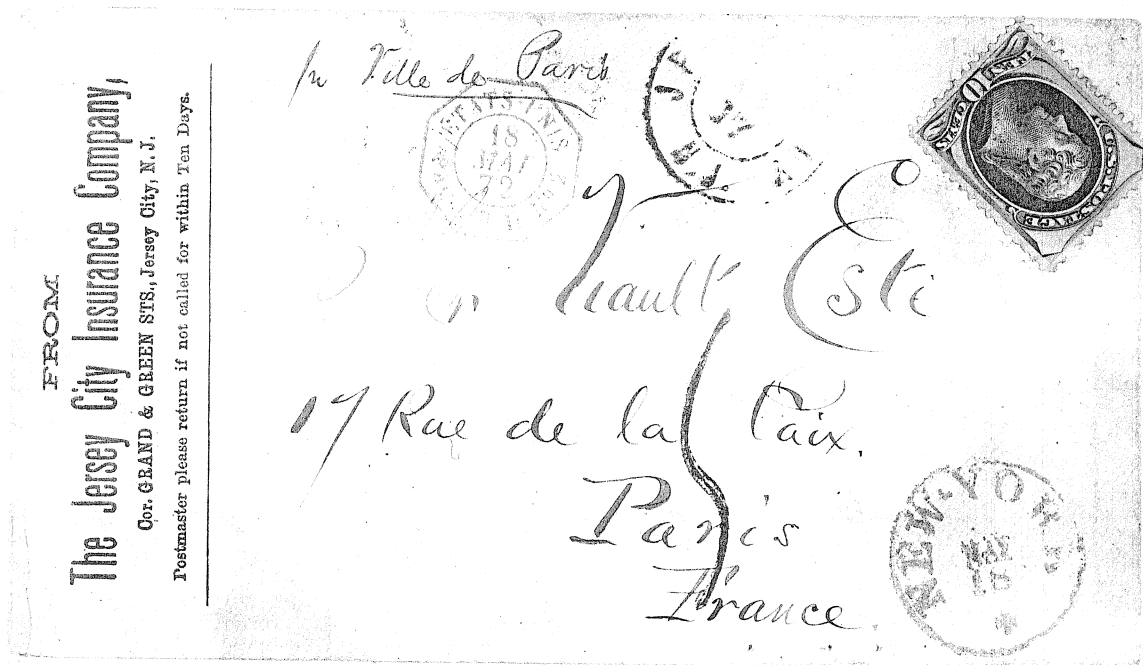 FROM
The Jersey City Insurance Company,
Cor. GRAND & GREEN STS., Jersey City, N. J.
Postmaster please return if not called for within Ten Days.
Ville de Paris
ETATS-UNIS
18
MAI
U.S. POSTAGE
TEN
10
CENTS
17 Rue de la Paix,
Paris
France.
NEW-YORK
MAY